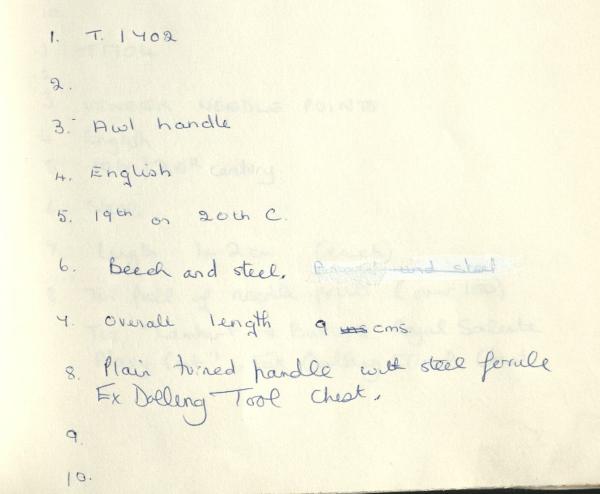 1. T. 1702
2.
3. Awl handle
4. English
5. 19th or 20th C.
6. Beech and steel. and steel
7. Overall length 9 cms
8. Plain turned handle with steel ferrule
Ex Dolling Tool Chest.
9.
10.